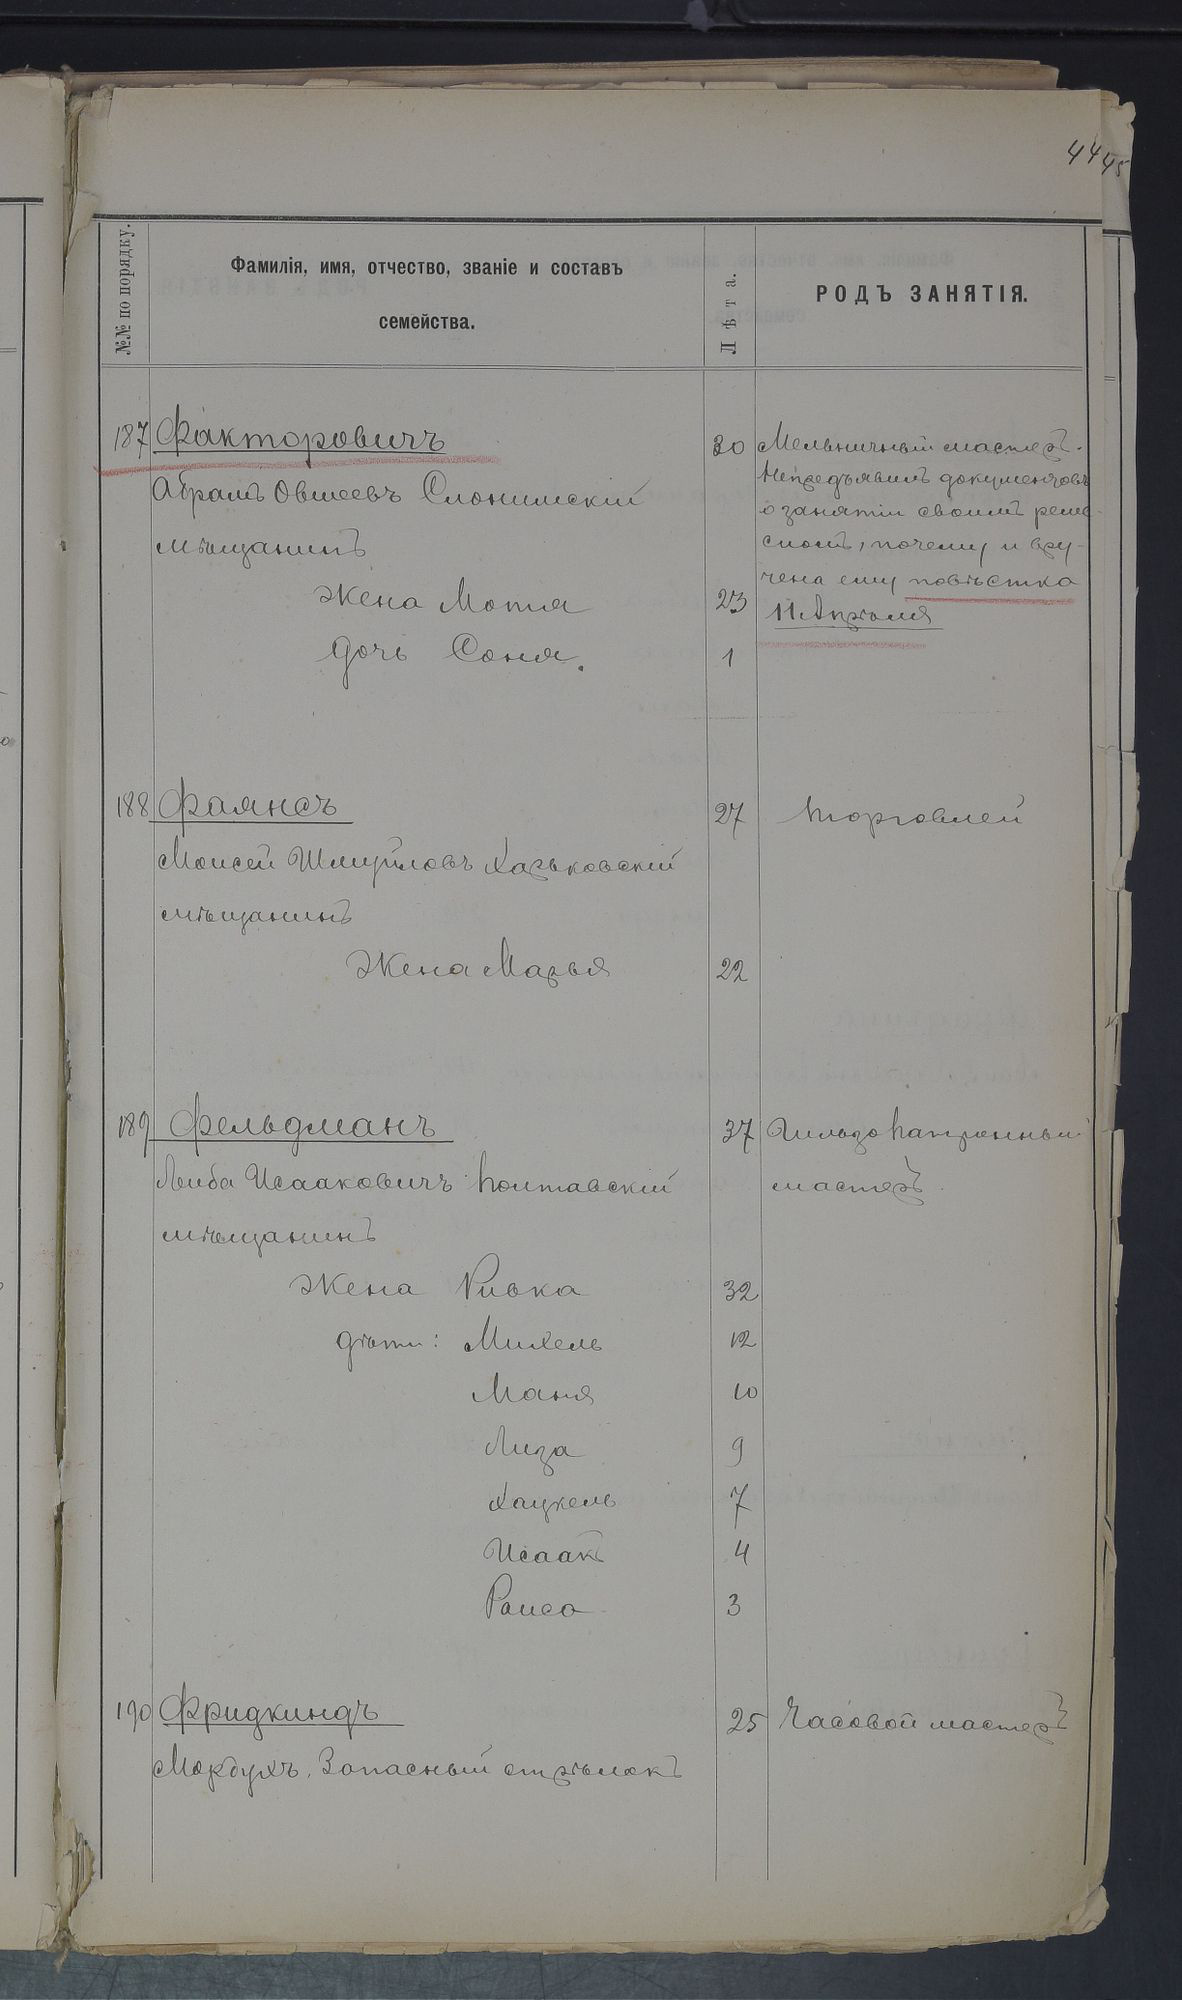 44 45
№№ по порядку.
Фамилія, имя, отчество, званіе и составъ
семейства.
Лѣта.
РОДЪ ЗАНЯТІЯ.
187 Факторовичъ 30 Мельничный мастеръ.
Непредъявилъ документовъ
Абрамъ Овшеевъ Слонимскій
о занятіи своимъ реме-
мѣщанинъ
сломъ, почему и вру-
чена ему повѣстка
Жена Мотля 23
11 Апрѣля
дочь Соня. 1
188 Фаянсъ 27 торговлей
Моисей Шмуйловъ Харьковскій
мѣщанинъ
Жена Марья 22
189 Фельдманъ 37 Гильзо патронный
Лейба Исааковичъ Полтавскій мастеръ.
мѣщанинъ
Жена Ривка 32
дѣти: Михель 12
Маня 10
Лиза 9
Хацкель 7
Исаакъ 4
Раиса 3
190 Фридкиндъ 25 Часовой мастеръ
Мордухъ. Запасный стрѣлокъ